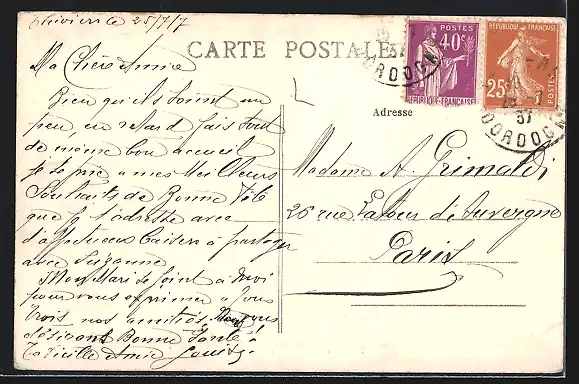 Thiviers le 25/7/7
CARTE POSTALE
Ma Chère Amie
Bien qu'ils soient un
peu en retard fais tout
de même bon accueil
je te prie a mes Meilleurs
Souhaits de Bonne Fête
que je t'adresse avec
d'affectueux Baisers à partager
avec Suzanne
Mon Mari se joint à moi
pour vous exprimer a vous
trois nos amitiés, vous
désirant Bonne Santé
Ta Vieille Amie Louise
Adresse
Madame A. Grimaldi
26 rue Latour d'Auvergne
Paris
40c
POSTES
RÉPUBLIQUE FRANÇAISE
RÉPUBLIQUE FRANÇAISE
25c
POSTES
DORDOGNE
37
DORDOGNE